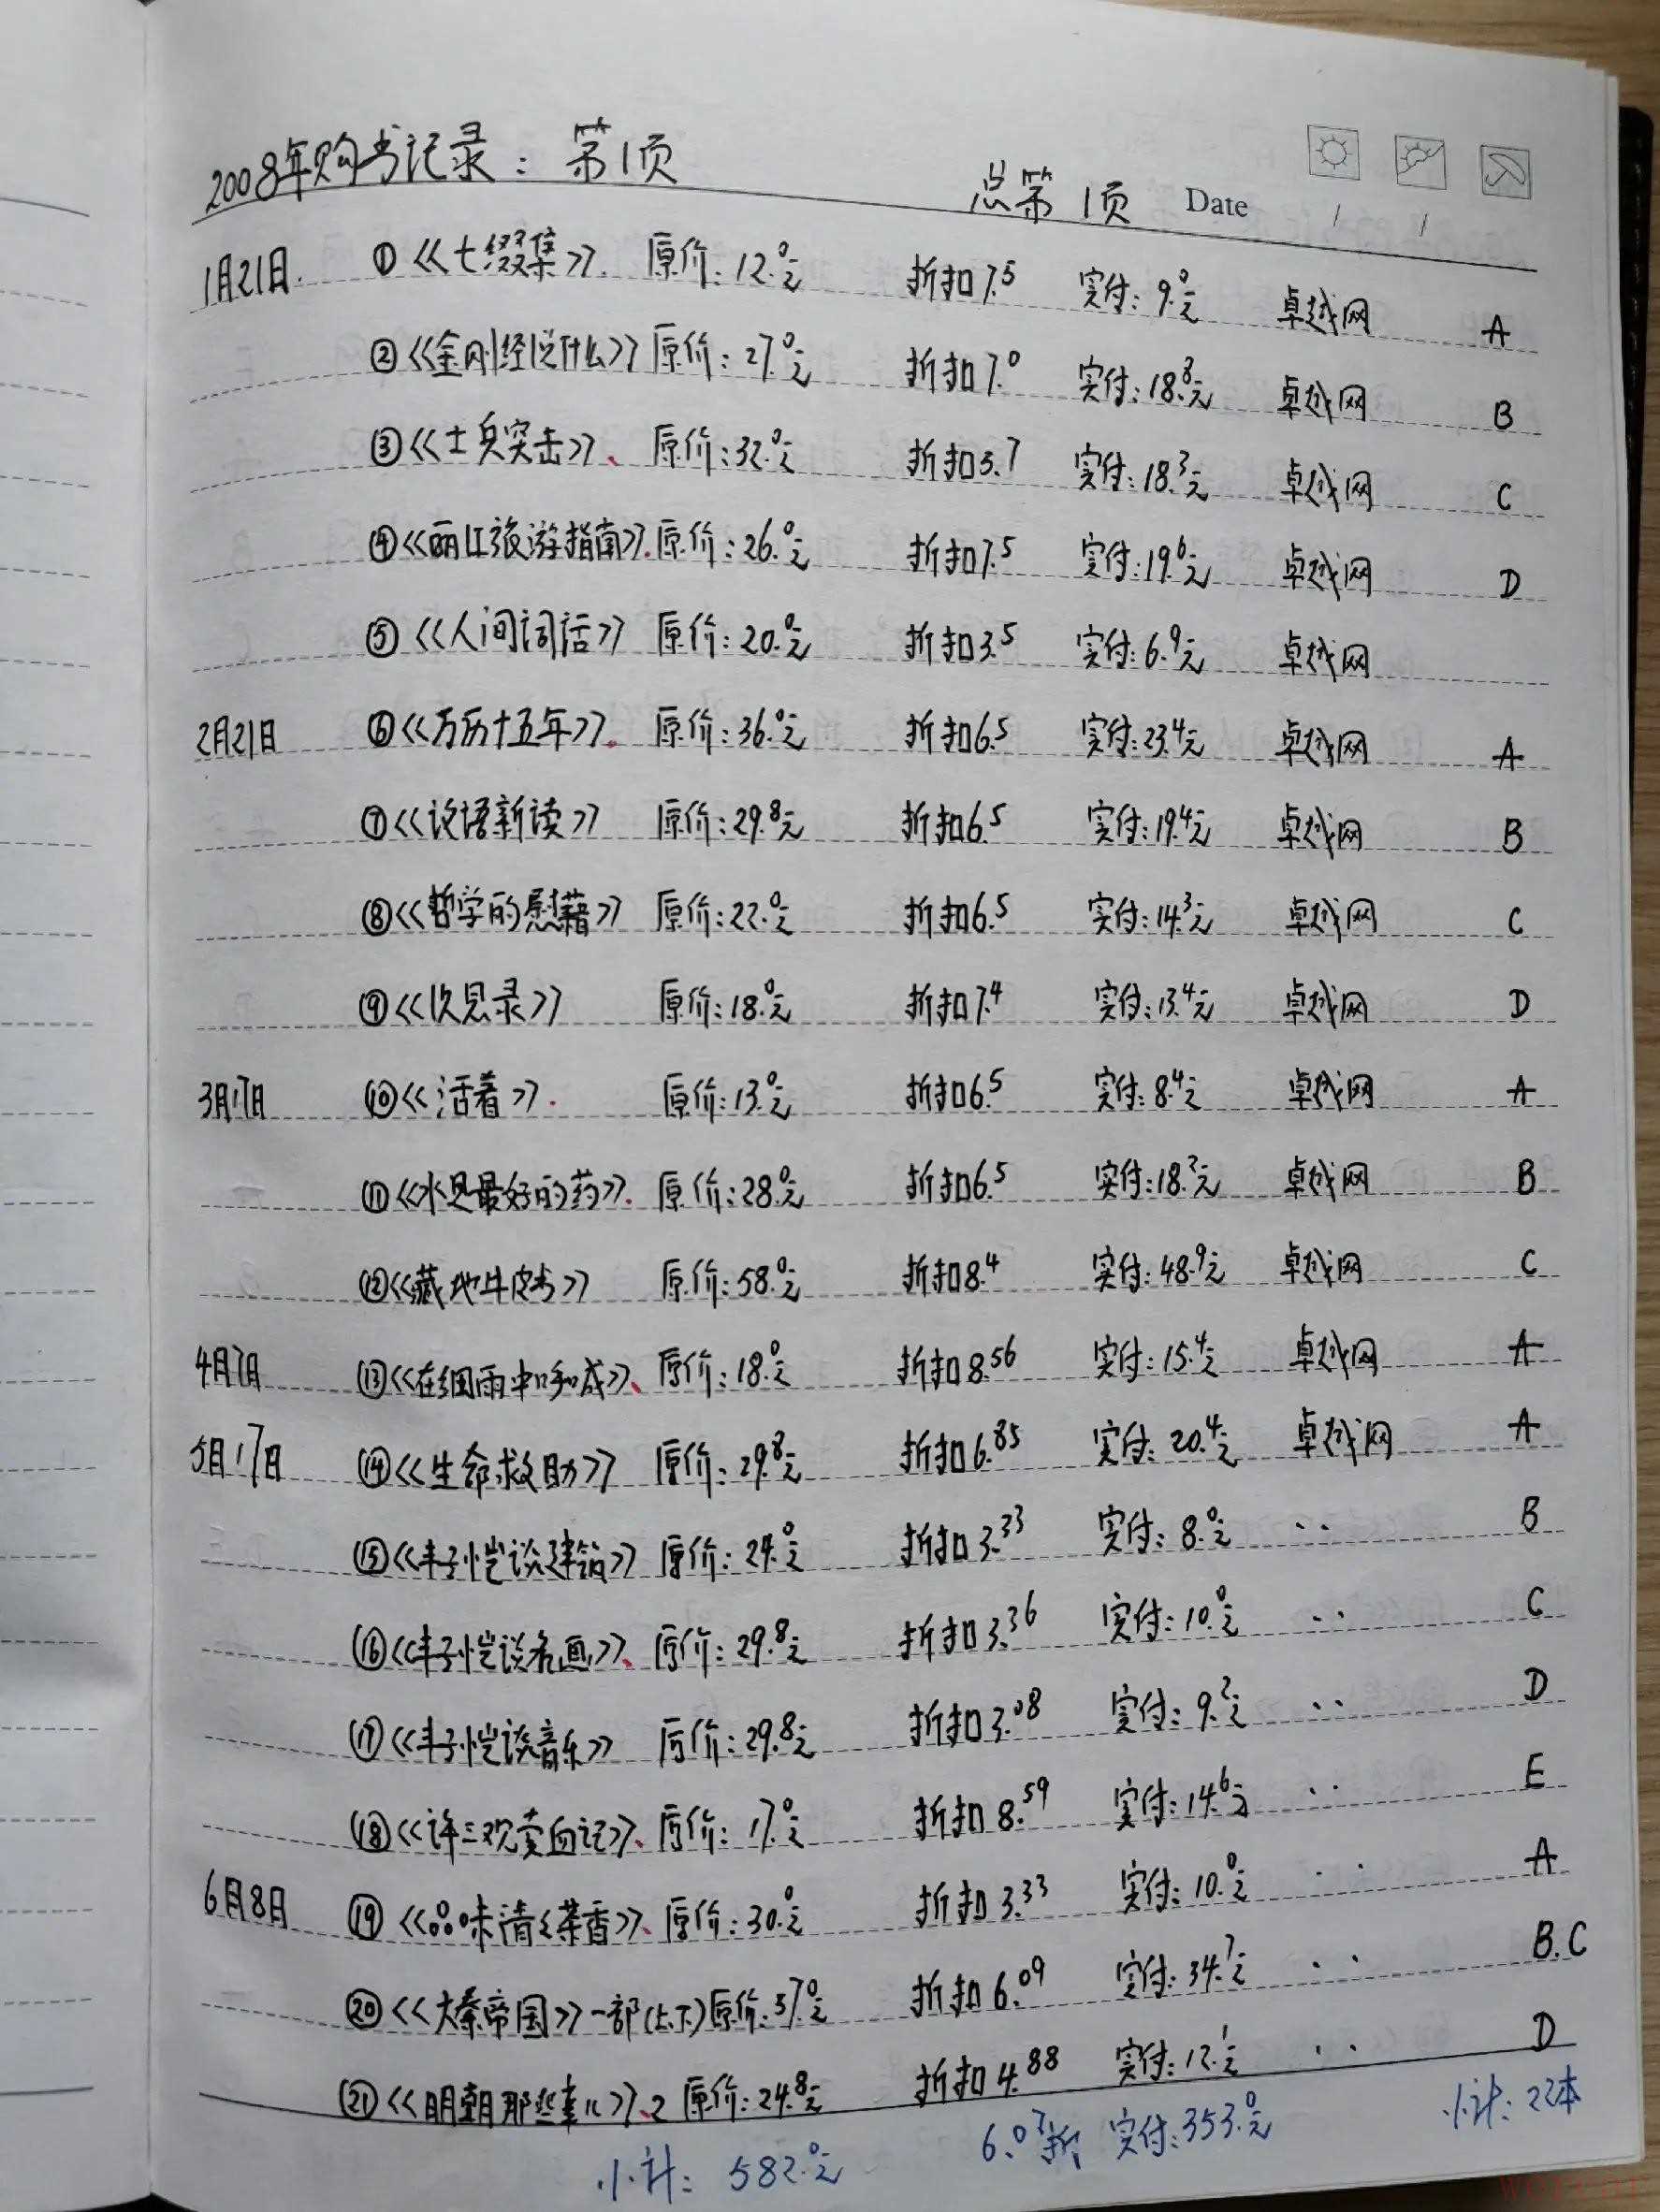 2008年购书记录：第1页 总第1页 Date / /
1月21日. ①《七缀集》. 原价:12.0元 折扣7.5 实付:9.0元 卓越网 A
②《金刚经说什么》原价:27.0元 折扣7.0 实付:18.8元 卓越网 B
③《士兵突击》、原价:32.0元 折扣5.7 实付:18.3元 卓越网 C
④《丽江旅游指南》.原价:26.0元 折扣7.5 实付:19.6元 卓越网 D
⑤《人间词话》原价:20.0元 折扣3.5 实付:6.9元 卓越网
2月21日 ⑥《万历十五年》. 原价:36.0元 折扣6.5 实付:23.4元 卓越网 A
⑦《论语新读》原价:29.8元 折扣6.5 实付:19.4元 卓越网 B
⑧《哲学的慰藉》原价:22.0元 折扣6.5 实付:14.3元 卓越网 C
⑨《仅见录》原价:18.0元 折扣7.4 实付:13.4元 卓越网 D
3月17日 ⑩《活着》. 原价:13.0元 折扣6.5 实付:8.4元 卓越网 A
⑪《水是最好的药》. 原价:28.0元 折扣6.5 实付:18.2元 卓越网 B
⑫《藏地牛皮书》原价:58.0元 折扣8.4 实付:48.9元 卓越网 C
4月7日 ⑬《在细雨中呼喊》、原价:18.0元 折扣8.56 实付:15.4元 卓越网 A
5月17日 ⑭《生命救助》原价:29.8元 折扣6.85 实付:20.4元 卓越网 A
⑮《丰子恺谈建筑》原价:24.0元 折扣3.33 实付:8.0元 ‥ B
⑯《丰子恺谈名画》、原价:29.8元 折扣3.36 实付:10.0元 ‥ C
⑰《丰子恺谈音乐》原价:29.8元 折扣3.08 实付:9.2元 ‥ D
⑱《许三观卖血记》、原价:17.0元 折扣8.59 实付:14.6元 ‥ E
6月8日 ⑲《品味清清茶香》、原价:30.0元 折扣3.33 实付:10.0元 ‥ A
⑳《大秦帝国》一部(上下)原价:57.0元 折扣6.09 实付:34.7元 ‥ B.C
㉑《明朝那些事儿》、2 原价:24.8元 折扣4.88 实付:12.1元 ‥ D
小计: 582.0元 6.07折 实付:353.0元 小计: 22本